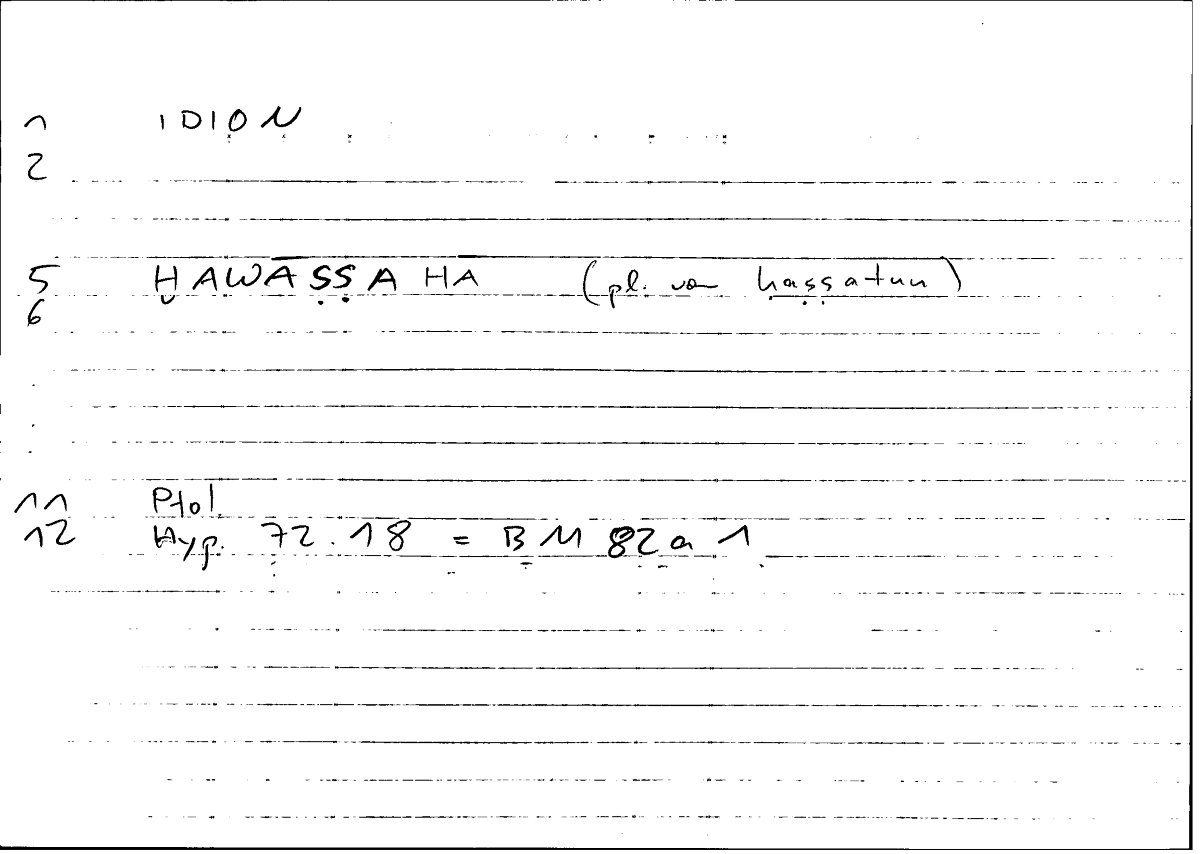 1 IDION
2
5 ḪAWĀṢṢAHĀ (pl. von ḫaṣṣatun)
6
.
.
.
11 Ptol
12 Hyp. 72.18 = BM 82a 1